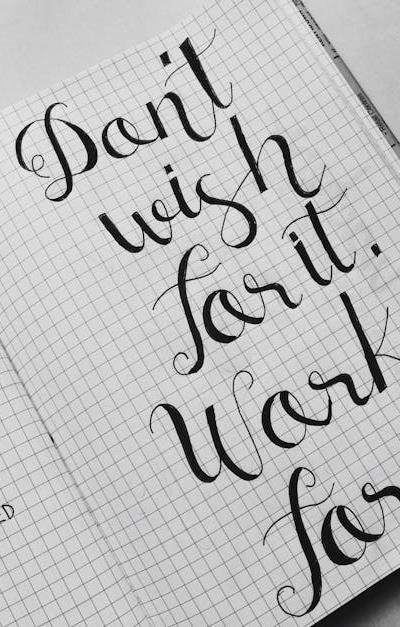 Don't
wish
for it.
Work
for
ED